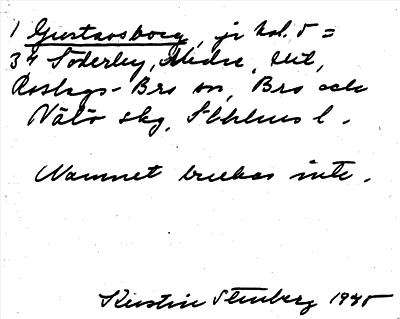 1 Gustavsborg, jr kol. 5 =
34 Söderby, Mi
Roslags-Bro sn, Bro och
Vätö skg, Sthlms l.
Namnet brukas inte.
Kerstin Stenberg 1945